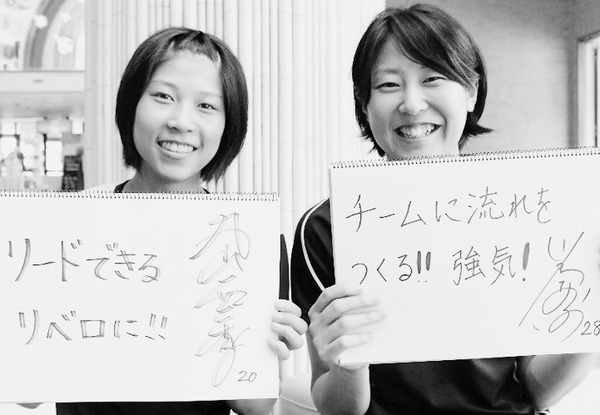 リードできる
リベロに!!
20
チームに流れを
つくる!! 強気!
28